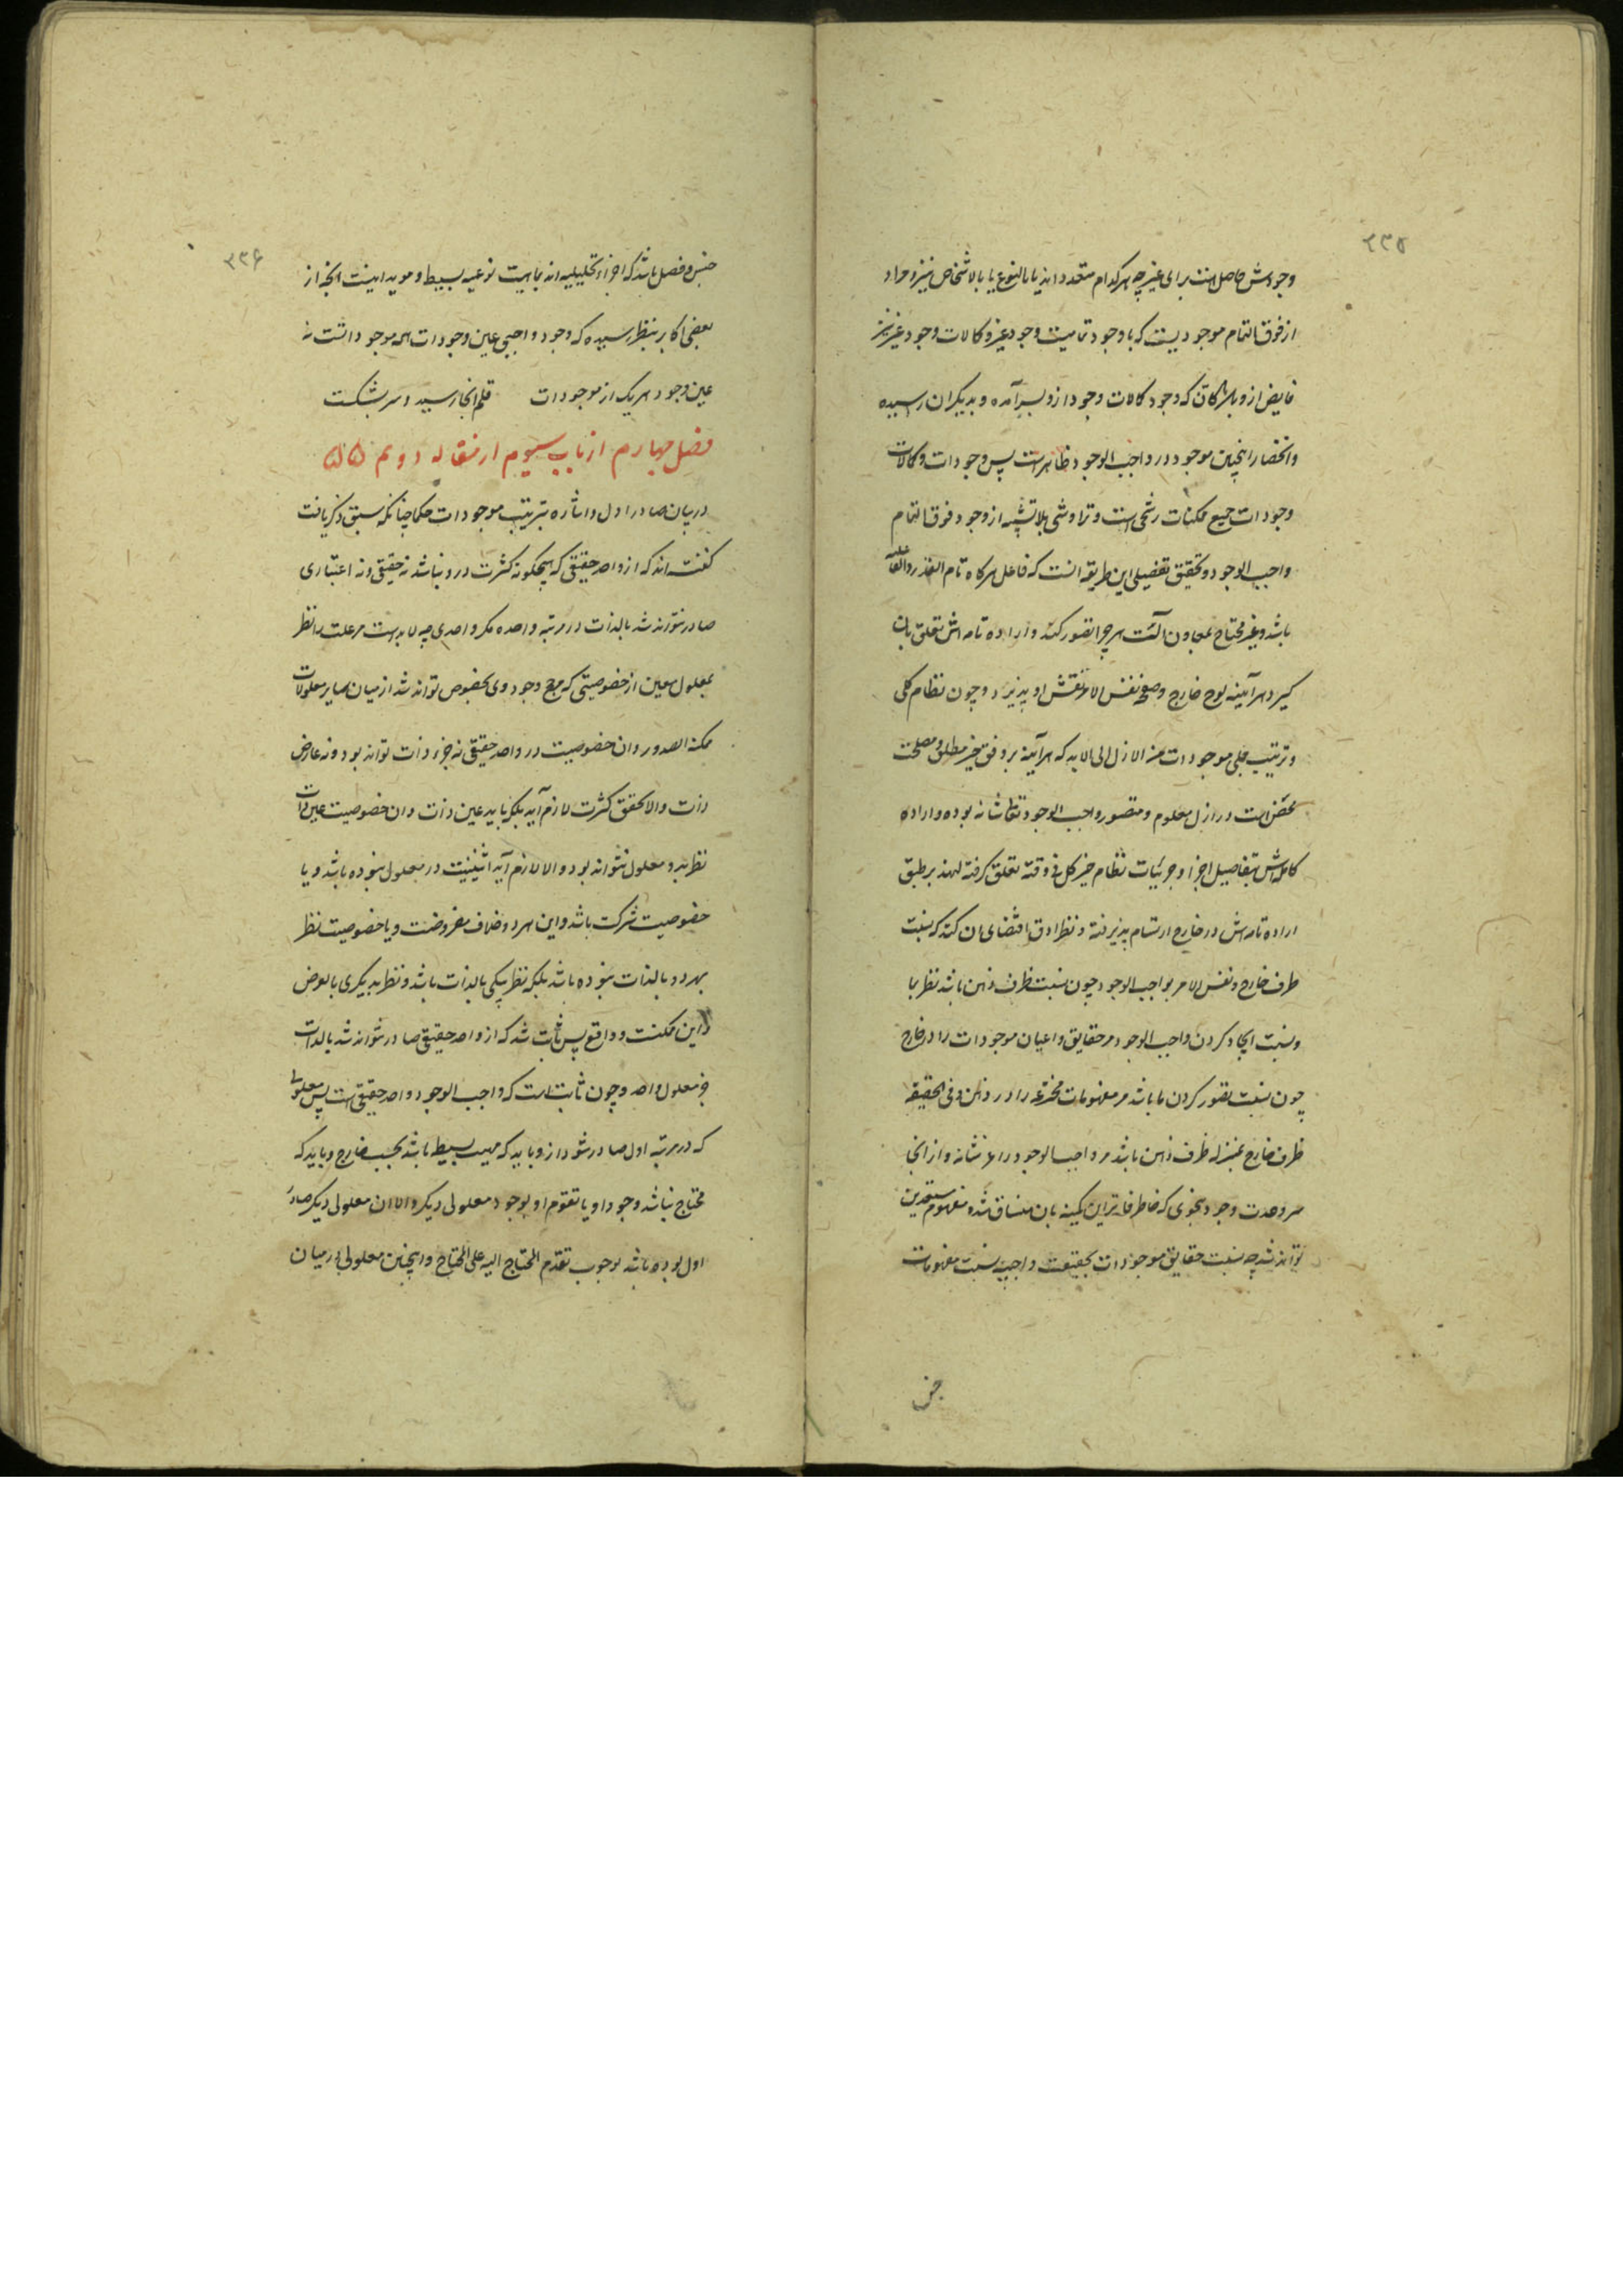 ۲۳۵
وجودش حاصل است برای غیر چه هر کدام متعدد اند یا بالنوع یا بالاشخاص نیز و مراد
از فوق التمام موجودیست که با وجود تمامیت وجود غیر و کمالات وجود غیر نیز
فایض ازو بلا مکان که وجود کمالات وجود ازو بسر آمده و بدیگران رسیده
و انحصار اینچنین موجود در واجب الوجود ظاهر است پس وجودات و کمالات
وجودات جمیع ممکنات رشحی است و تراوشی بلا تشبیه از وجود فوق التمام
واجب الوجود و تحقیق تفصیلی این طریقه انست که فاعل هرکاه تام القدرة
باشد و غیر محتاج بمعاون و آلت هرچه را تصور کند و اراده تامه اش تعلق بان
کیرد هر آینه لوح خارج و صفحه نفس الامر نقش او پذیرد و چون نظام کلی
و ترتیب جملی موجودات من الازل الی الابد که هر آینه بر وفق خیر مطلق و مصلحت
محض است در ازل معلوم و متصور واجب الوجود تعالی شانه بوده و اراده
کامله اش بتفاصیل اجزا و جزئیات نظام خیر کل فی وقته تعلق کرفته لهذا بر طبق
اراده تامه اش در خارج ارتسام پذیرفته و نظر ادق اقتضای ان کند که نسبت
ظرف خارج و نفس الامر بواجب الوجود چون نسبت ظرف ذهن باشد نظر بما
و نسبت ایجاد کردن واجب الوجود مر حقایق و اعیان موجودات را در خارج
چون نسبت تصور کردن ما باشد مر مفهومات مخترعه را در ذهن و فی الحقیقه
ظرف خارج بمنزله ظرف ذهن باشد مر واجب الوجود را عز شانه و از انجا
سر وحدت وجود بنحوی که خاطر فاتر این کمینه بان منساق شده مفهوم مستعدین
تواند شد چه نسبت حقایق موجودات بحقیقت واجبیه نسبت مفهومات
جنس
۲۳۶
جنس و فصل باشد که اجزاء تحلیلیه اند بماهیت نوعیه بسیط و موید اینست انچه از
بعضی اکابر بنظر رسیده که وجود واجبی عین وجودات همه موجوداتست نه
عین وجود هر یک از موجودات قلم اینجا رسید و سر بشکست
فصل چهارم از باب سیوم از مقاله دویم
در بیان صادر اول و اشاره بترتیب موجودات حکما چنانکه سبق ذکر یافت
کفته اند که از واحد حقیقی که هیچکونه کثرت درو نباشد نه حقیقی و نه اعتباری
صادر نتواند شد بالذات در مرتبه واحده مکر واحدی چه لا بد است مر علت را نظر
بمعلول معین از خصوصیتی که مرجح وجود وی بخصوص تواند شد از میان سایر معلولات
ممکنة الصدور و ان خصوصیت در واحد حقیقی نه جزء ذات تواند بود و نه عارض
ذات والا تحقق کثرت لازم آید بلکه باید عین ذات و ان خصوصیت عین ذات
نظر بدو معلول نتواند بود والا لازم آید اثنینیت در معلول نبوده باشد و یا
خصوصیت شرکت باشد و این هر دو خلاف مفروضست و یا خصوصیت نظر
بهر دو بالذات نبوده باشد بلکه نظر بیکی بالذات باشد و نظر بدیکری بالعرض
و این ممکنست و واقع پس ثابت شد که از واحد حقیقی صادر نتواند شد بالذات
جز معلول واحد و چون ثابت است که واجب الوجود واحد حقیقی است پس معلولی
که در مرتبه اول صادر شود ازو باید که بسیط باشد بحسب خارج و باید که
محتاج نباشد وجود او یا تقوم او بوجود معلولی دیکر والا ان معلولی دیکر صادر
اول بوده باشد لوجوب تقدم المحتاج الیه علی المحتاج و اینچنین معلولی در میان